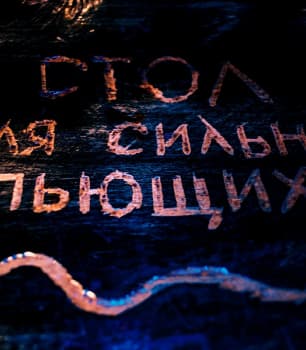 СТОЛ
ля сильн
пьющих